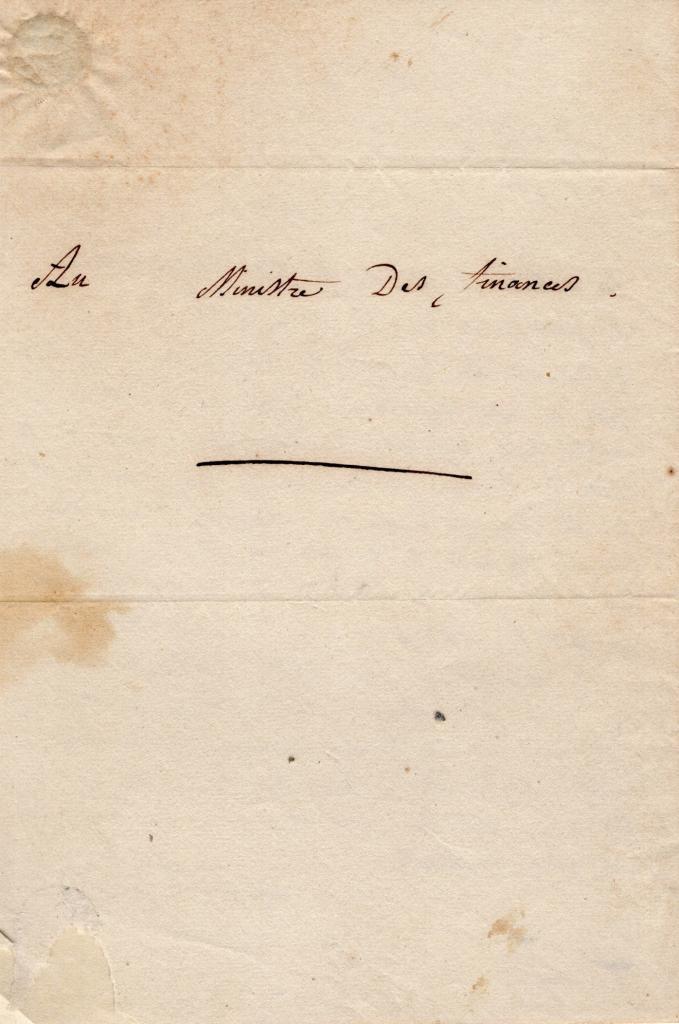 Au Ministre Des finances.